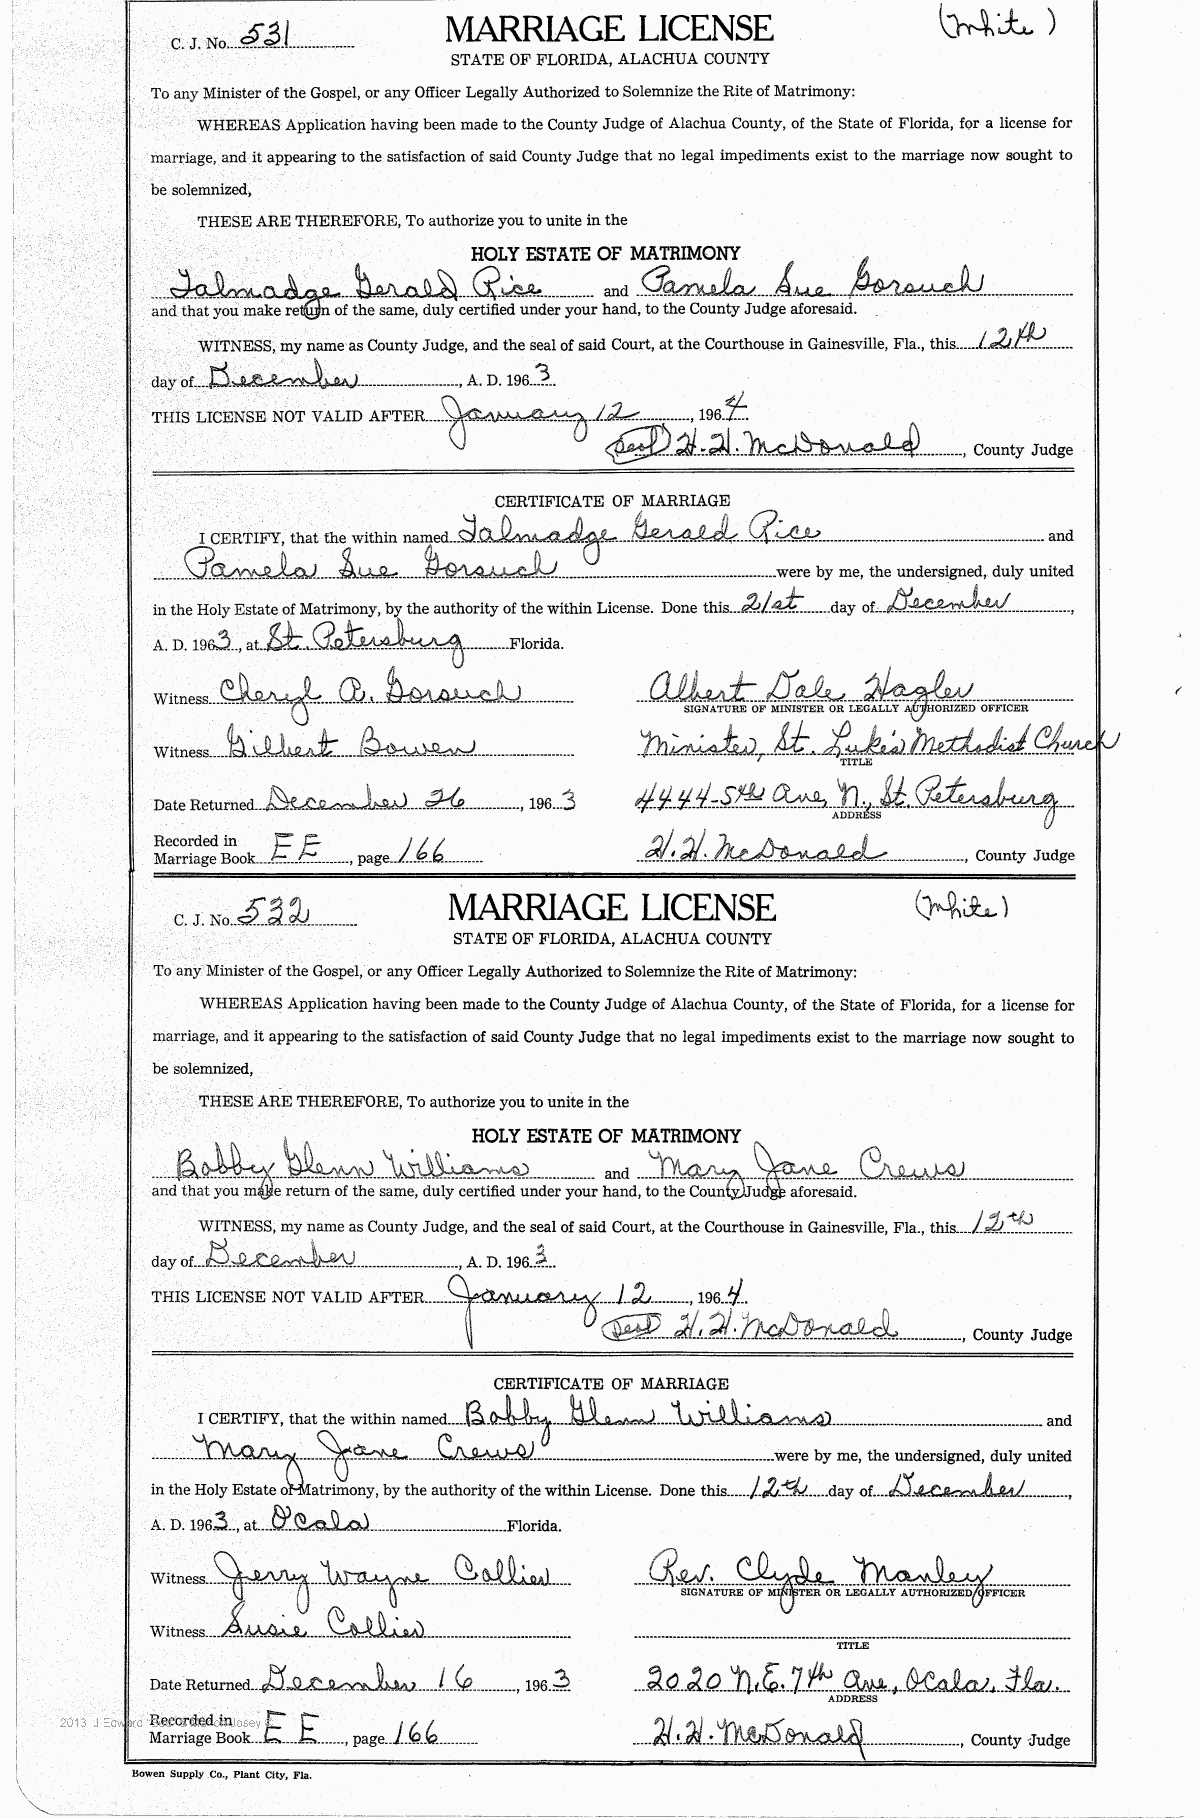 C. J. No. 531 MARRIAGE LICENSE (White)
STATE OF FLORIDA, ALACHUA COUNTY
To any Minister of the Gospel, or any Officer Legally Authorized to Solemnize the Rite of Matrimony:
WHEREAS Application having been made to the County Judge of Alachua County, of the State of Florida, for a license for
marriage, and it appearing to the satisfaction of said County Judge that no legal impediments exist to the marriage now sought to
be solemnized,
THESE ARE THEREFORE, To authorize you to unite in the
HOLY ESTATE OF MATRIMONY
Talmadge Gerald Rice and Pamela Sue Gorsuch
and that you make return of the same, duly certified under your hand, to the County Judge aforesaid.
WITNESS, my name as County Judge, and the seal of said Court, at the Courthouse in Gainesville, Fla., this 12th
day of December, A. D. 1963.
THIS LICENSE NOT VALID AFTER January 12, 1964
Seal H. H. McDonald, County Judge
CERTIFICATE OF MARRIAGE
I CERTIFY, that the within named Talmadge Gerald Rice and
Pamela Sue Gorsuch were by me, the undersigned, duly united
in the Holy Estate of Matrimony, by the authority of the within License. Done this 21st day of December,
A. D. 1963, at St. Petersburg Florida.
Witness Cheryl A. Gorsuch Albert Dale Hagler
SIGNATURE OF MINISTER OR LEGALLY AUTHORIZED OFFICER
Witness Gilbert Bowen Minister, St. Luke's Methodist Church
TITLE
Date Returned December 26, 1963 4444-5th Ave, N., St. Petersburg
ADDRESS
Recorded in
Marriage Book EE, page 166 H. H. McDonald, County Judge
C. J. No. 532 MARRIAGE LICENSE (White)
STATE OF FLORIDA, ALACHUA COUNTY
To any Minister of the Gospel, or any Officer Legally Authorized to Solemnize the Rite of Matrimony:
WHEREAS Application having been made to the County Judge of Alachua County, of the State of Florida, for a license for
marriage, and it appearing to the satisfaction of said County Judge that no legal impediments exist to the marriage now sought to
be solemnized,
THESE ARE THEREFORE, To authorize you to unite in the
HOLY ESTATE OF MATRIMONY
Bobby Glenn Williams and Mary Jane Crews
and that you make return of the same, duly certified under your hand, to the County Judge aforesaid.
WITNESS, my name as County Judge, and the seal of said Court, at the Courthouse in Gainesville, Fla., this 12th
day of December, A. D. 1963.
THIS LICENSE NOT VALID AFTER January 12, 1964.
Seal H. H. McDonald, County Judge
CERTIFICATE OF MARRIAGE
I CERTIFY, that the within named Bobby Glenn Williams and
Mary Jane Crews were by me, the undersigned, duly united
in the Holy Estate of Matrimony, by the authority of the within License. Done this 12th day of December,
A. D. 1963, at Ocala Florida.
Witness Jerry Wayne Collier Rev. Clyde Manley
SIGNATURE OF MINISTER OR LEGALLY AUTHORIZED OFFICER
Witness Susie Collier
TITLE
Date Returned December 16, 1963 2020 N.E. 7th Ave, Ocala, Fla.
ADDRESS
2013 J Edward Josey
Recorded in
Marriage Book EE, page 166 H. H. McDonald, County Judge
Bowen Supply Co., Plant City, Fla.